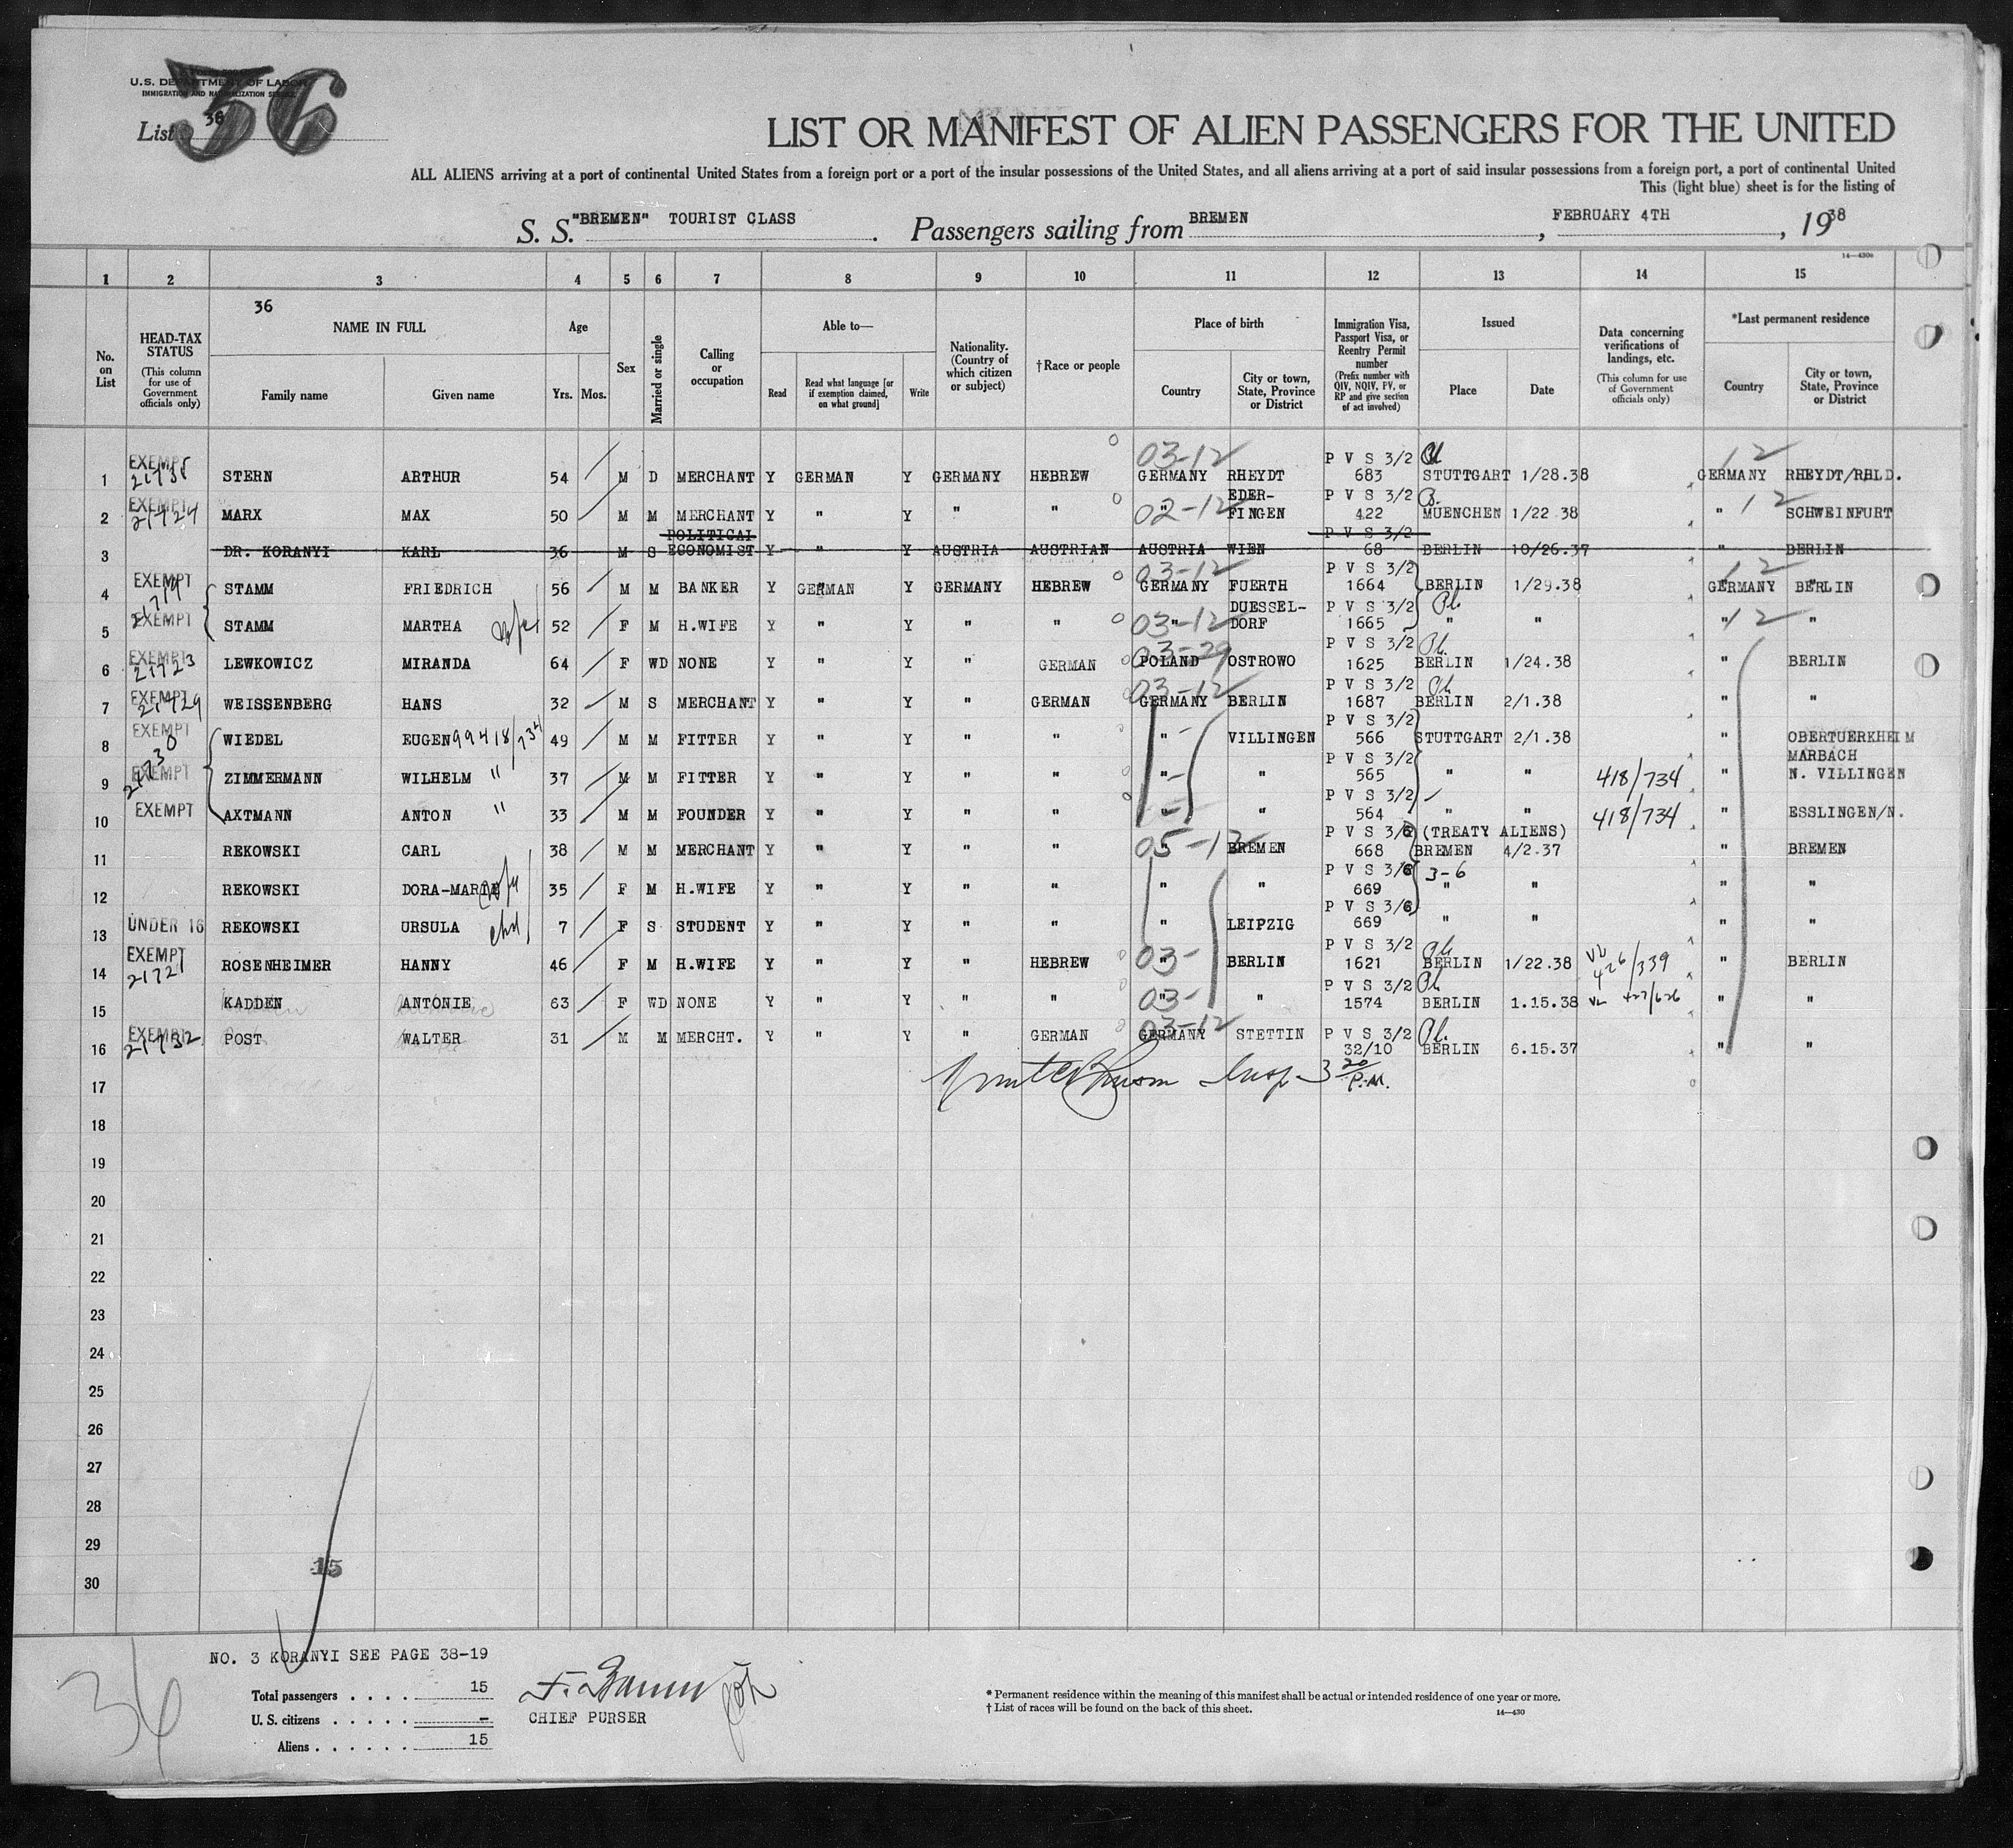 U.S. DEPARTMENT OF LABOR
IMMIGRATION AND NATURALIZATION SERVICE
List 36
36
LIST OR MANIFEST OF ALIEN PASSENGERS FOR THE UNITED
ALL ALIENS arriving at a port of continental United States from a foreign port or a port of the insular possessions of the United States, and all aliens arriving at a port of said insular possessions from a foreign port, a port of continental United
This (light blue) sheet is for the listing of
S. S. "BREMEN" TOURIST CLASS. Passengers sailing from BREMEN, FEBRUARY 4TH, 1938
1 2 3 4 5 6 7 8 9 10 11 12 13 14 15
36
No. on List
HEAD-TAX STATUS (This column for use of Government officials only)
NAME IN FULL
Family name Given name
Age
Yrs. Mos.
Sex
Married or single
Calling or occupation
Able to—
Read Read what language [or if exemption claimed, on what ground] Write
Nationality. (Country of which citizen or subject)
†Race or people
Place of birth
Country City or town, State, Province or District
Immigration Visa, Passport Visa, or Reentry Permit number (Prefix number with QIV, NQIV, PV, or RP and give section of act involved)
Issued
Place Date
Data concerning verifications of landings, etc. (This column for use of Government officials only)
*Last permanent residence
Country City or town, State, Province or District
1 EXEMPT 21735 STERN ARTHUR 54 M D MERCHANT Y GERMAN Y GERMANY HEBREW 03-12 GERMANY RHEYDT P V S 3/2 683 STUTTGART 1/28.38 12 GERMANY RHEYDT/RHLD.
2 EXEMPT 21724 MARX MAX 50 M M MERCHANT Y " Y " " 02-12 " EDER-FINGEN P V S 3/2 422 MUENCHEN 1/22 38 " 12 SCHWEINFURT
3 DR. KORANYI KARL 36 M S POLITICAL ECONOMIST Y " Y AUSTRIA AUSTRIAN AUSTRIA WIEN P V S 3/2 68 BERLIN 10/26.37 " BERLIN
4 EXEMPT 21719 STAMM FRIEDRICH 56 M M BANKER Y GERMAN Y GERMANY HEBREW 03-12 GERMANY FUERTH P V S 3/2 1664 BERLIN 1/29.38 12 GERMANY BERLIN
5 EXEMPT STAMM MARTHA wfe 52 F M H.WIFE Y " Y " " 03-12 " DUESSEL-DORF P V S 3/2 1665 " " " 12 "
6 EXEMPT 21723 LEWKOWICZ MIRANDA 64 F WD NONE Y " Y " GERMAN 03-29 POLAND OSTROWO P V S 3/2 1625 BERLIN 1/24.38 " BERLIN
7 EXEMPT 21729 WEISSENBERG HANS 32 M S MERCHANT Y " Y " GERMAN 03-12 GERMANY BERLIN P V S 3/2 1687 BERLIN 2/1.38 " "
8 EXEMPT WIEDEL EUGEN 99418/734 49 M M FITTER Y " Y " " " VILLINGEN P V S 3/2 566 STUTTGART 2/1.38 " OBERTUERKHEIM
9 EXEMPT 21730 ZIMMERMANN WILHELM " 37 M M FITTER Y " Y " " " " P V S 3/2 565 " " 418/734 " MARBACH N. VILLINGEN
10 EXEMPT AXTMANN ANTON " 33 M M FOUNDER Y " Y " " " " P V S 3/2 564 " " 418/734 " ESSLINGEN/N.
11 REKOWSKI CARL 38 M M MERCHANT Y " Y " " 05-12 " BREMEN P V S 3/6 668 (TREATY ALIENS) BREMEN 4/2.37 " BREMEN
12 REKOWSKI DORA-MARIE wfe 35 F M H.WIFE Y " Y " " " " P V S 3/6 669 3-6 " " " "
13 UNDER 16 REKOWSKI URSULA chd 7 F S STUDENT Y " Y " " " LEIPZIG P V S 3/6 669 " " " "
14 EXEMPT 21721 ROSENHEIMER HANNY 46 F M H.WIFE Y " Y " HEBREW 03- " BERLIN P V S 3/2 1621 BERLIN 1/22.38 VL 426/339 " BERLIN
15 KADDEN ANTONIE 63 F WD NONE Y " Y " " 03- " " P V S 3/2 1574 BERLIN 1.15.38 VL 427/626 " "
16 EXEMPT 21732 POST WALTER 31 M M MERCHT. Y " Y " GERMAN 03-12 GERMANY STETTIN P V S 3/2 32/10 BERLIN 6.15.37 " "
17 Insp 3 20/P.M.
18
19
20
21
22
23
24
25
26
27
28
29
30
15
NO. 3 KORANYI SEE PAGE 38-19
36
Total passengers . . . . 15
U. S. citizens . . . . . —
Aliens . . . . . . 15
CHIEF PURSER
* Permanent residence within the meaning of this manifest shall be actual or intended residence of one year or more.
† List of races will be found on the back of this sheet.
14—430